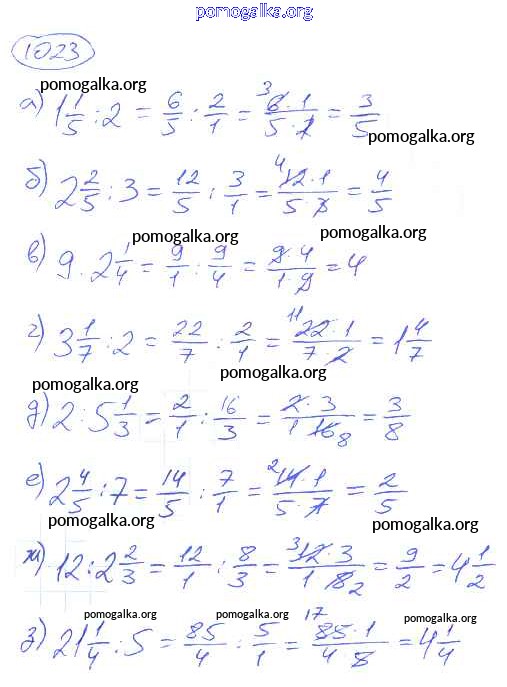 pomogalka.org
1023
pomogalka.org
а) 1 1/5 : 2 = 6/5 : 2/1 = 3 6·1/5·2 = 3/5
pomogalka.org
б) 2 2/5 : 3 = 12/5 : 3/1 = 4 12·1/5·3 = 4/5
pomogalka.org
в) 9 : 2 1/4 = 9/1 : 9/4 = 9·4/1·9 = 4
pomogalka.org
г) 3 1/7 : 2 = 22/7 : 2/1 = 11 22·1/7·2 = 1 4/7
pomogalka.org
pomogalka.org
д) 2 : 5 1/3 = 2/1 : 16/3 = 2·3/1 16 8 = 3/8
pomogalka.org
е) 2 4/5 : 7 = 14/5 : 7/1 = 2 14·1/5·7 = 2/5
pomogalka.org
pomogalka.org
ж) 12 : 2 2/3 = 12/1 : 8/3 = 3 12·3/1 8 2 = 9/2 = 4 1/2
pomogalka.org
pomogalka.org
pomogalka.org
з) 21 1/4 : 5 = 85/4 : 5/1 = 17 85·1/4·8 = 4 1/4